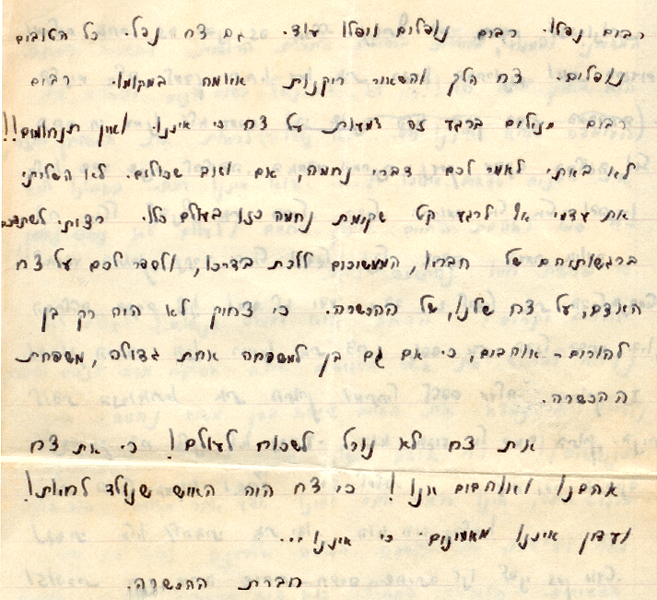 רבים נפלו. רבים נופלים ויפלו עוד. גם צח נפל. כל הטובים
נופלים. צח הלך והשאיר ריקנות איומה במקומו. רבים
רבים מזילים ברגע זה דמעות על צח כי איננו. ואין תנחומים!!
לא באתי לאמר לכם דברי נחמה, אם ואב שכולים. לא הפליתי
את עצמי אף לרגע קט שקיימת נחמה כזו בעולם כלו. רציתי לשתפכם
ברגשותיהם של חבריו, הממשיכים ללכת בדרכו, ולספר לכם על צח
האדם, על צח שלנו, של ההכשרה. כי צחיק לא היה רק בן
להורים - אוהבים, כי אם גם בן למשפחה אחת גדולה, משפחת
ההכשרה.
את צח לא נוכל לשכוח לעולם! כי את צח
אהבנו ואוהבים אנו! כי צח היה האיש שנולד לחיות!
ועדין איננו מאמינים כי איננו...
חברת ההכשרה.